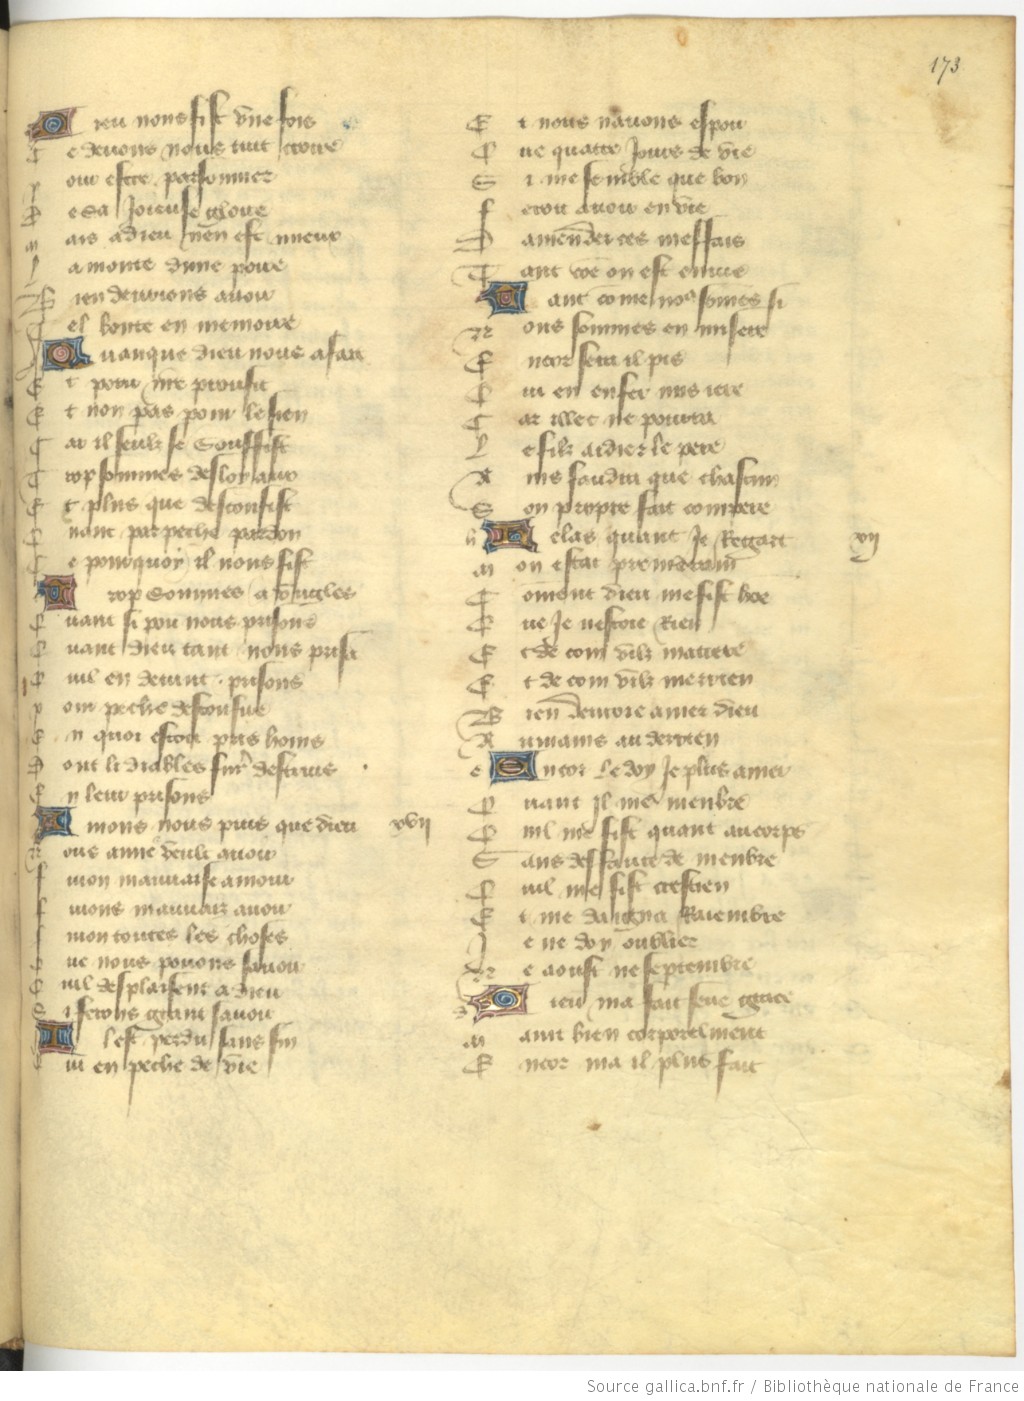 173
Dieu nous fist une fois
Ce devons nous tuit croire
Pour estre parsonnier
De sa joieuse gloire
Mais a dieu nen est mieux
La monte dune poire
Bien devrions avoir
Tel bonte en memoire
Quanque dieu nous a fait
Et pour nre proufit
Et non pas pour le sien
Car il seulz se souffist
Trop sommes desloyaux
Et plus que desconfist
Quant par peche pardon
Ce pourquoy il nous fist
Trop sommes avugles
Quant si pou nous prisons
Quant dieu tant nous prisa
Quil en devint prisons
Pour peche desconfire
En quoi estoit pas homs
Dont li diables furent destruis
En leur prisons
Amons nous puis que dieu xvii
Nous anne veult avoir
Sinon mauvaise amour
Sinons mauvaiz avoir
Sinon toutes les choses
Que nous povons savoir
Quil desplaisent a dieu
Si ferons grant savoir
Il est perdu sans fin
Qui en peche devie
Et nous navons espoir
Que quatre jours de vie
Si me semble que bon
Feroit avoir en vie
Damender ces meffais
Tant come on est en vie
Tant come nous somes si
Nous sommes en misere
Encor sera il pis
Qui en enfer mis iere
Car illec ne pourra
Le filz aidier le pere
Ains faudra que chascun
Son propre fait compere
Helas quant je regart vii
Mon estat premerain
Coment dieu me fist home
Que je nestoie rien
Et de com vilz matiere
Et de com vilz merrien
Bien devroie amer dieu
Au mains au derrien
Encor le doy je plus amer
Quant il me menbre
Quil me fist quant au corps
Sans deffaute de menbre
Quil me fist crestien
Et me daigna raiembre
Je ne doy oublier
Ne aoust ne septembre
Dieu ma fait seue grace
Maint bien corporelment
Encor ma il plus fait
Source gallica.bnf.fr / Bibliothèque nationale de France